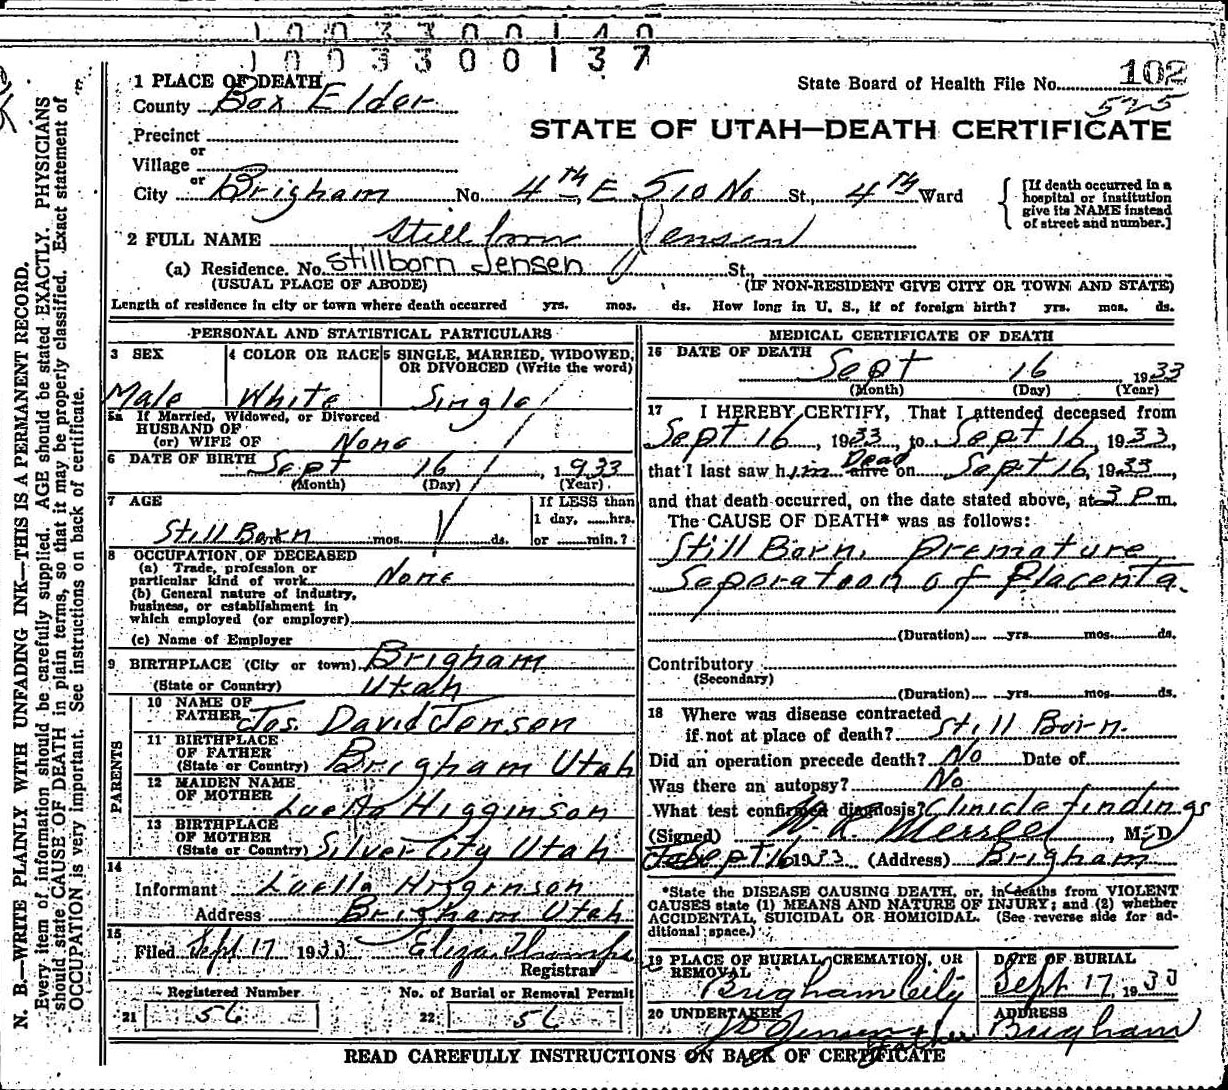 1 0 0 3 3 0 0 1 4 0
1 0 0 3 3 0 0 1 3 7
1 PLACE OF DEATH
State Board of Health File No. 102
County Box Elder
525
STATE OF UTAH—DEATH CERTIFICATE
Precinct
or
Village
or
City Brigham No. 4th E 510 No St., 4th Ward
[If death occurred in a
hospital or institution
give its NAME instead
of street and number.]
2 FULL NAME Still born Jensen
(a) Residence. No. Stillborn Jensen St.,
(USUAL PLACE OF ABODE) (IF NON-RESIDENT GIVE CITY OR TOWN AND STATE)
Length of residence in city or town where death occurred yrs. mos. ds. How long in U. S., if of foreign birth? yrs. mos. ds.
PERSONAL AND STATISTICAL PARTICULARS
3 SEX 4 COLOR OR RACE 5 SINGLE, MARRIED, WIDOWED,
OR DIVORCED (Write the word)
Male White Single
5a If Married, Widowed, or Divorced
HUSBAND OF
(or) WIFE OF None
6 DATE OF BIRTH Sept 16 1933
(Month) (Day) (Year)
7 AGE If LESS than
1 day, ......hrs.
Still Born mos. ds. or ......min.?
8 OCCUPATION OF DECEASED
(a) Trade, profession or
particular kind of work None
(b) General nature of industry,
business, or establishment in
which employed (or employer)
(c) Name of Employer
9 BIRTHPLACE (City or town) Brigham
(State or Country) Utah
PARENTS
10 NAME OF
FATHER Jos. David Jensen
11 BIRTHPLACE
OF FATHER
(State or Country) Brigham Utah
12 MAIDEN NAME
OF MOTHER Luella Higginson
13 BIRTHPLACE
OF MOTHER
(State or Country) Silver City Utah
14
Informant Luella Higginson
Address Brigham Utah
15
Filed Sept 17 1933 Eliza
Registrar
Registered Number No. of Burial or Removal Permit
21 56 22 56
MEDICAL CERTIFICATE OF DEATH
16 DATE OF DEATH Sept 16 1933
(Month) (Day) (Year)
17 I HEREBY CERTIFY, That I attended deceased from
Sept 16, 1933, to Sept 16, 1933,
that I last saw him Dead alive on Sept 16, 1933
and that death occurred, on the date stated above, at 3 P.m.
The CAUSE OF DEATH* was as follows:
Still Born. Premature
Separation of Placenta.
(Duration) yrs. mos. ds.
Contributory
(Secondary)
(Duration) yrs. mos. ds.
18 Where was disease contracted
if not at place of death? Still Born.
Did an operation precede death? No Date of
Was there an autopsy? No
What test confirmed diagnosis? Clinicle findings
(Signed) W. R. Merrell, M. D
Sept 16 1933 (Address) Brigham
*State the DISEASE CAUSING DEATH, or, in deaths from VIOLENT
CAUSES state (1) MEANS AND NATURE OF INJURY; and (2) whether
ACCIDENTAL, SUICIDAL OR HOMICIDAL. (See reverse side for ad-
ditional space.)
19 PLACE OF BURIAL, CREMATION, OR
REMOVAL Brigham City
DATE OF BURIAL
Sept 17 1933
20 UNDERTAKER J D Jensen father
ADDRESS Brigham
READ CAREFULLY INSTRUCTIONS ON BACK OF CERTIFICATE
N. B.—WRITE PLAINLY WITH UNFADING INK—THIS IS A PERMANENT RECORD.
Every item of information should be carefully supplied. AGE should be stated EXACTLY. PHYSICIANS
should state CAUSE OF DEATH in plain terms, so that it may be properly classified. Exact statement of
OCCUPATION is very important. See instructions on back of certificate.